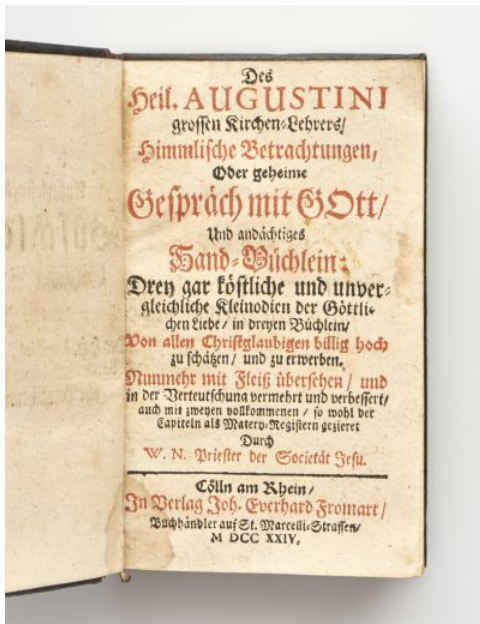 Des
Heil. AUGUSTINI
grossen Kirchen-Lehrers/
Himmlische Betrachtungen,
Oder geheime
Gespräch mit GOtt/
Und andächtiges
Hand-Büchlein:
Drey gar köstliche und unver-
gleichliche Kleinodien der Göttli-
chen Liebe / in dreyen Büchlein/
Von allen Christglaubigen billig hoch
zu schätzen / und zu erwerben.
Nunmehr mit Fleiß übersehen / und
in der Verteutschung vermehrt und verbessert/
auch mit zweyen vollkommenen / so wohl der
Capiteln als Matery-Registern gezieret
Durch
W. N. Priester der Societät Jesu.
Cölln am Rhein/
In Verlag Joh. Everhard Fromart/
Buchhändler auf St. Marcelli-Strassen/
M DCC XXIV.